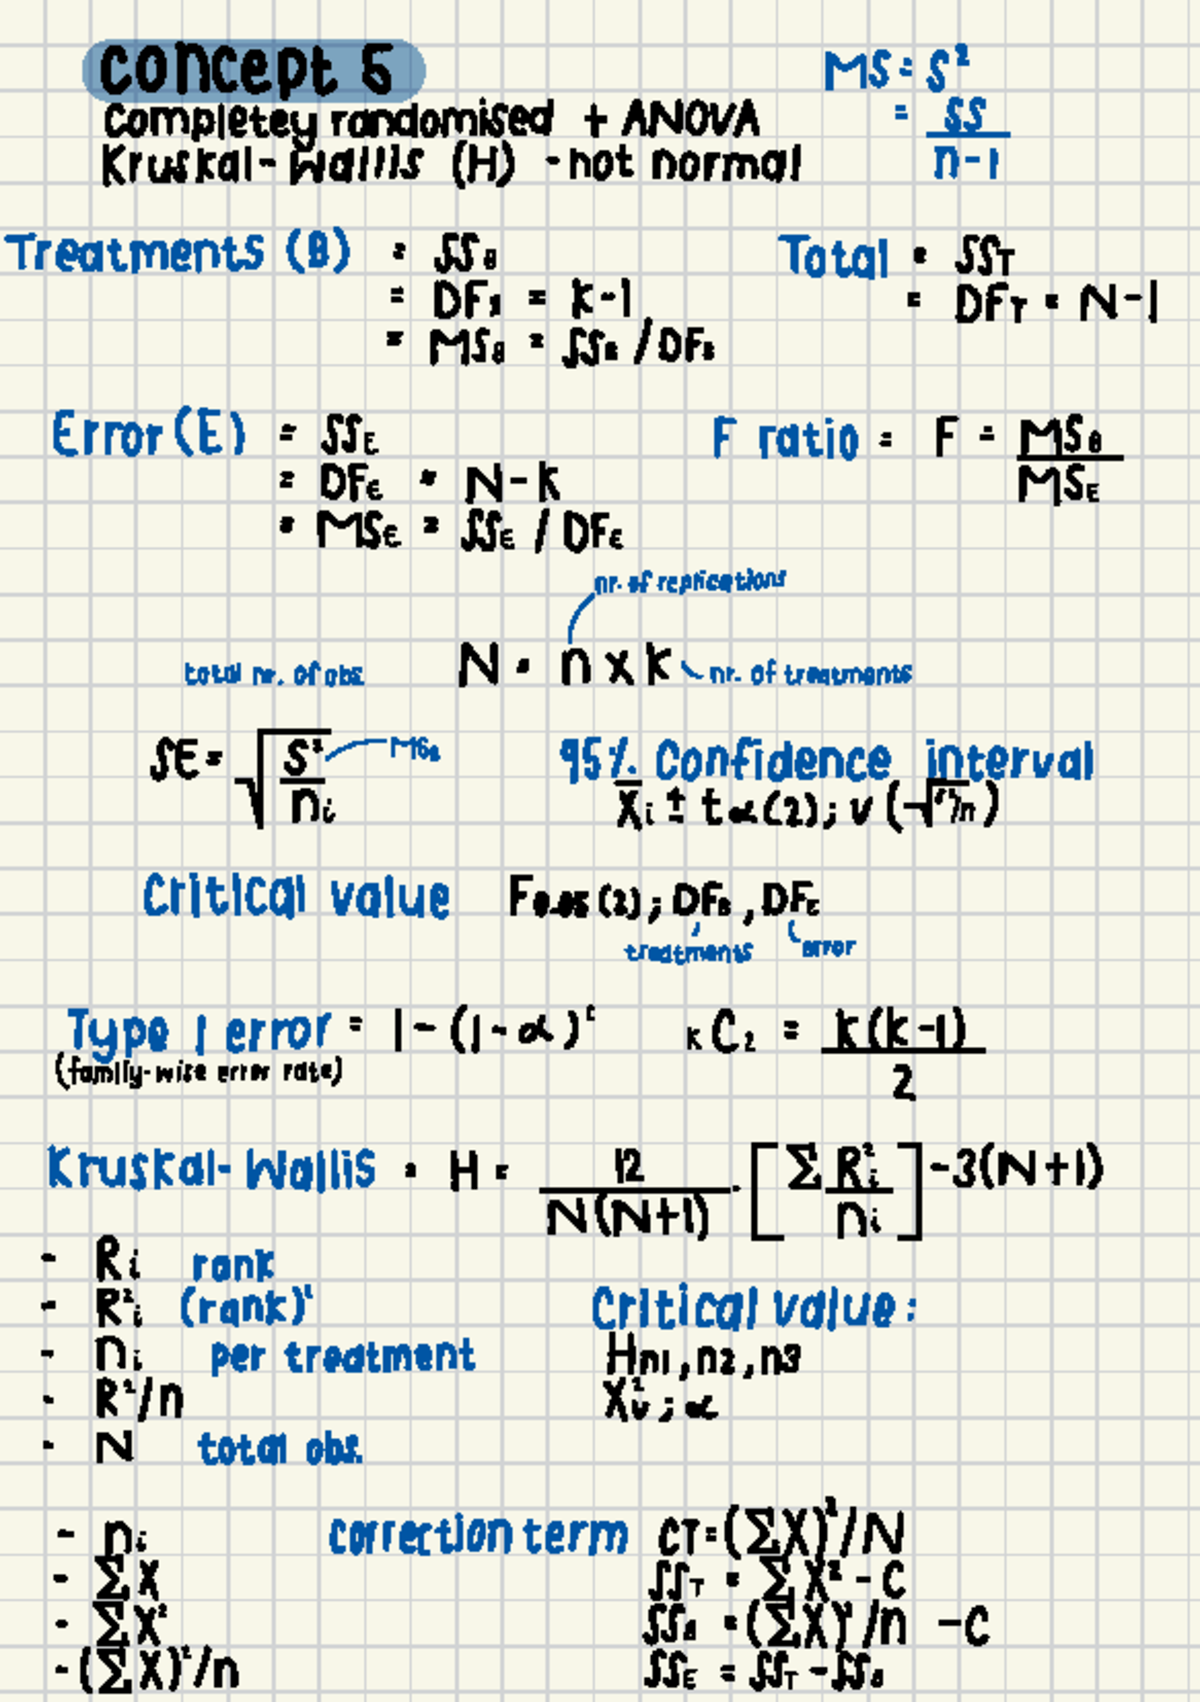 concept 5
Completey randomised + ANOVA
Kruskal-Wallis (H) - not normal
MS = S²
= SS / n-1
Treatments (B) = SS_B
= DF_B = k-1
= MS_B = SS_B / DF_B
Total = SS_T
= DF_T = N-1
Error (E) = SS_E
= DF_E = N-k
= MS_E = SS_E / DF_E
F ratio = F = MS_B / MS_E
nr. of replications
total nr. of obs N = n x k nr. of treatments
SE = √(S²/n_i)
95% Confidence interval
X̄_i ± t α(2); v (√(s²/n))
Critical value F 0.05 (2); DF_B, DF_E
treatments error
Type 1 error = 1 - (1 - α)ᶜ
(family-wise error rate)
kC₂ = k(k-1) / 2
Kruskal-Wallis = H = 12 / N(N+1) · [Σ R²_i / n_i] - 3(N+1)
- R_i rank
- R²_i (rank)²
- n_i per treatment
- R²/n
- N total obs.
Critical value:
H n1, n2, n3
X²_v ; α
- n_i
- ΣX
- ΣX²
- (ΣX)²/n
correction term CT = (ΣX)²/N
SS_T = ΣX² - C
SS_B = (ΣX)²/n - C
SS_E = SS_T - SS_B